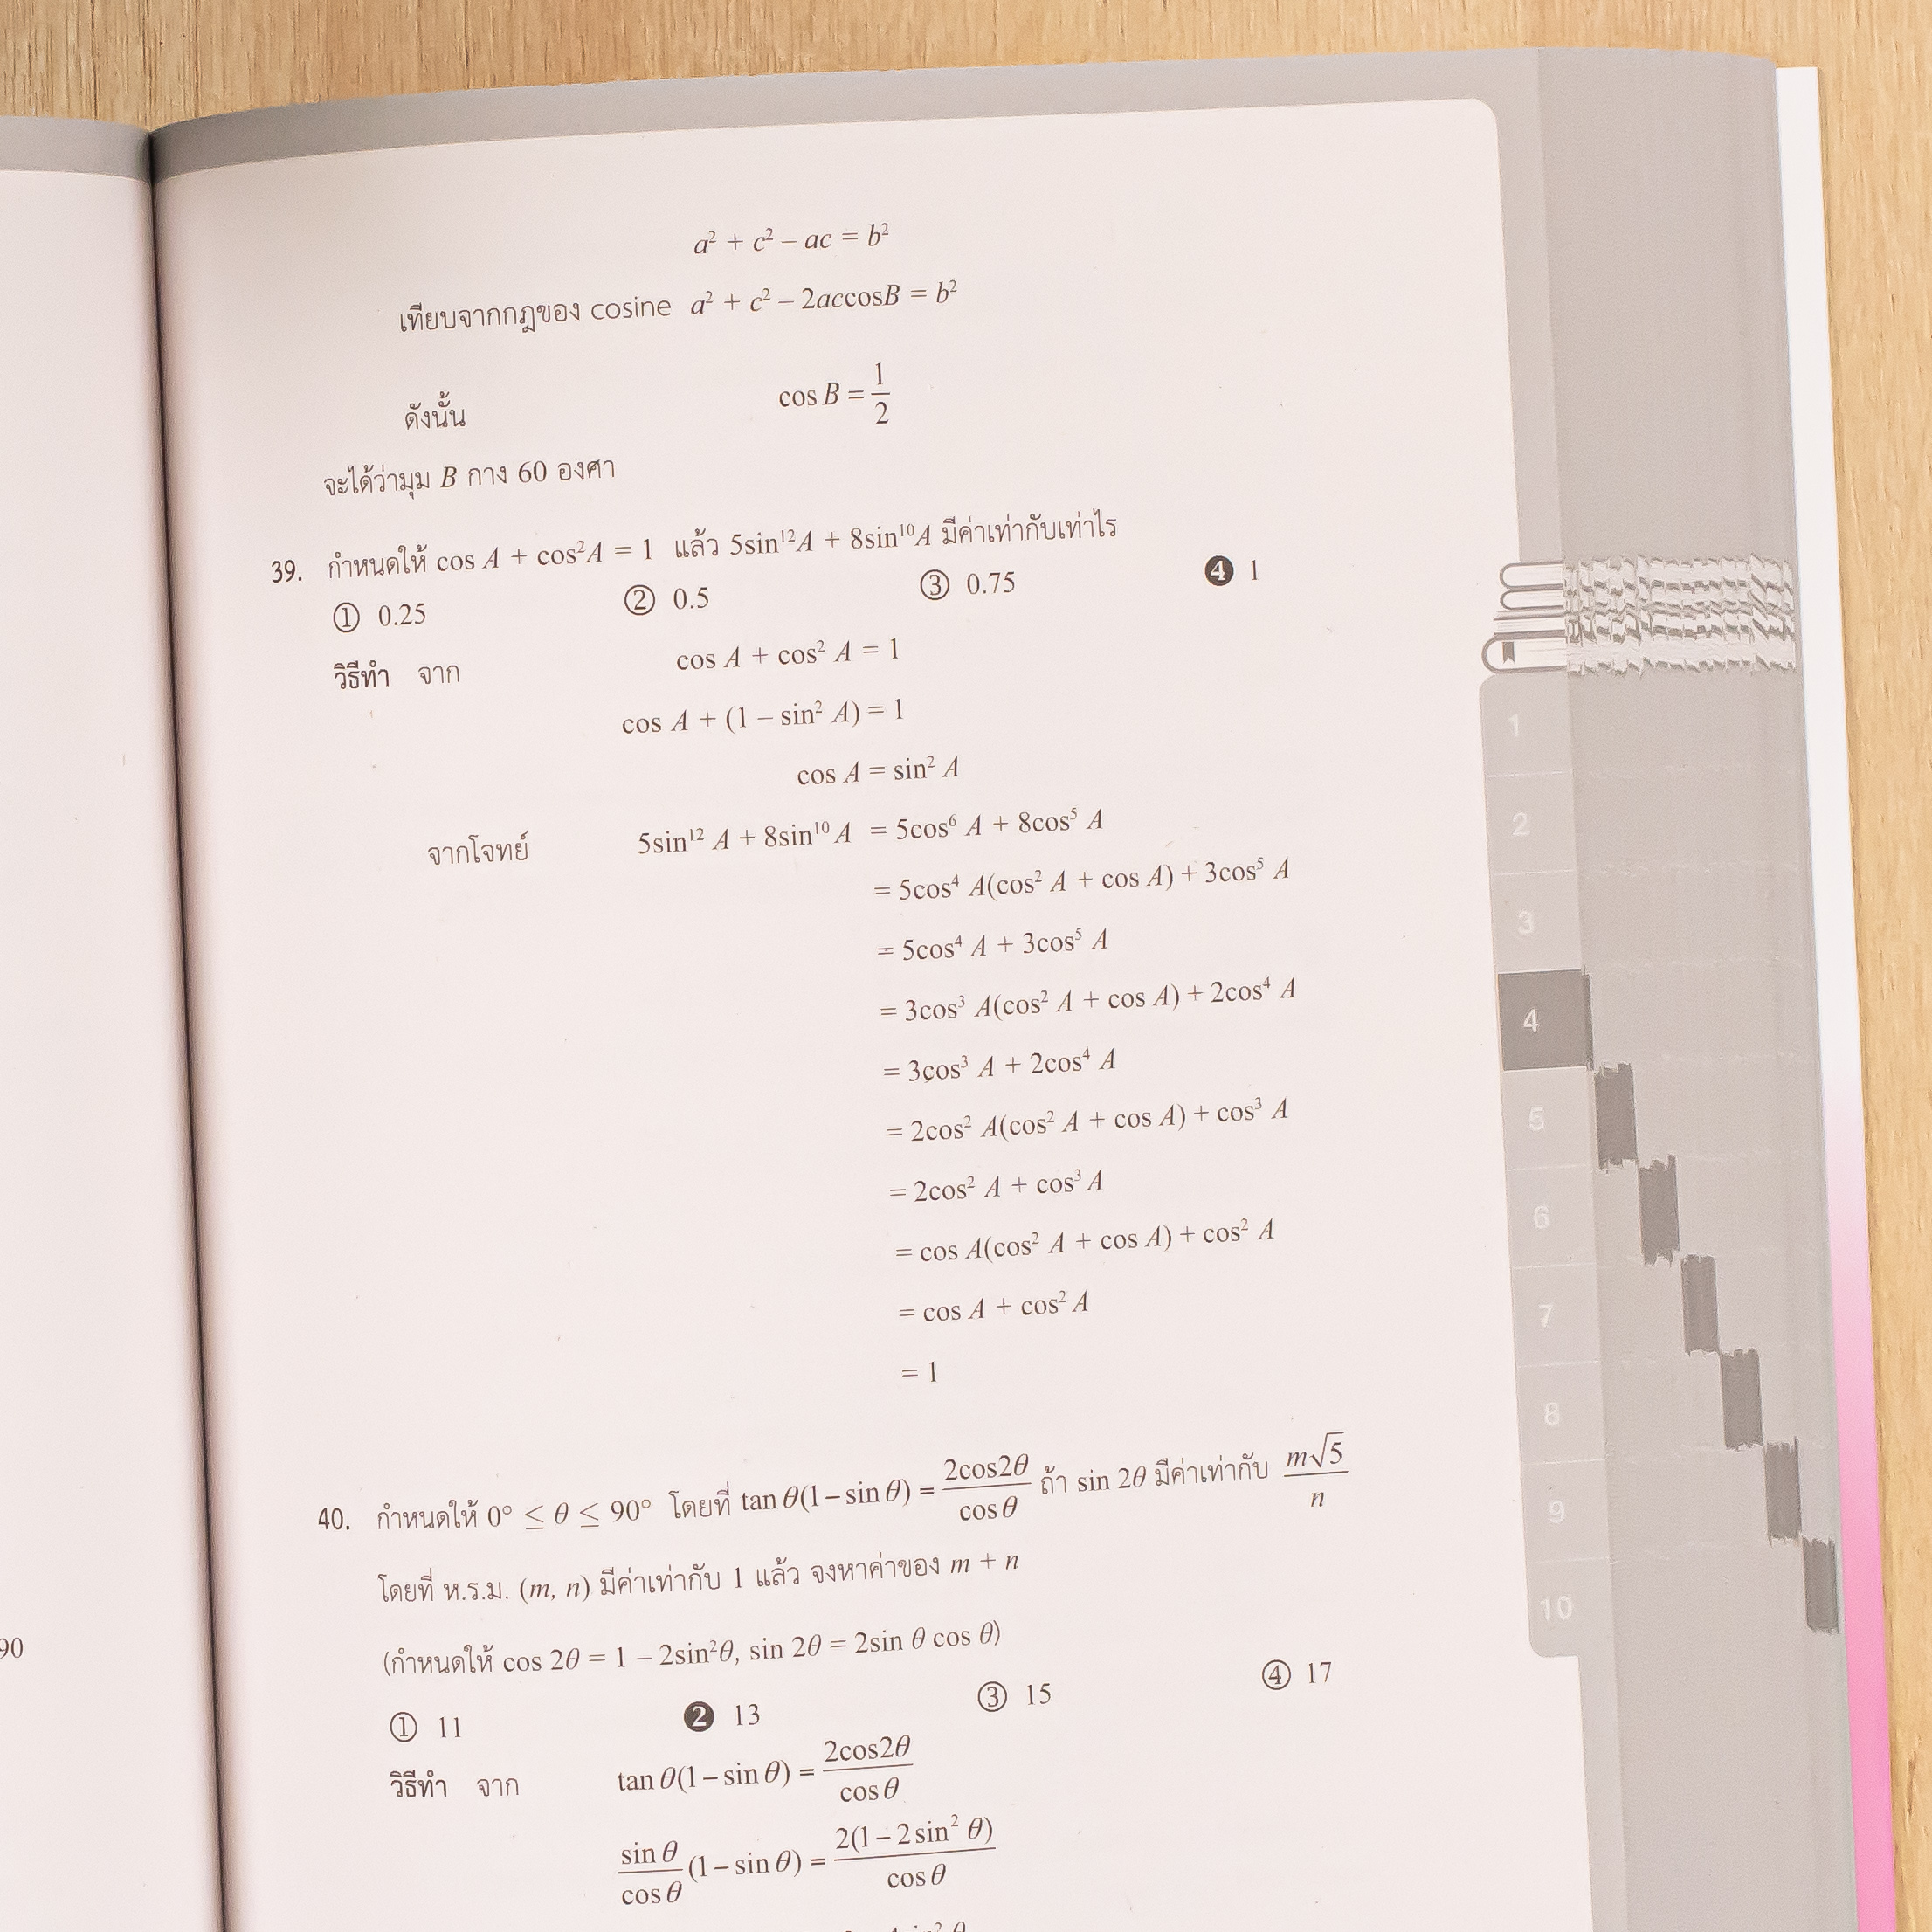 a² + c² – ac = b²
เทียบจากกฎของ cosine a² + c² – 2accosB = b²
ดังนั้น cos B = 1/2
จะได้ว่ามุม B กาง 60 องศา
39. กำหนดให้ cos A + cos²A = 1 แล้ว 5sin¹²A + 8sin¹⁰A มีค่าเท่ากับเท่าไร
① 0.25 ② 0.5 ③ 0.75 ❹ 1
วิธีทำ จาก cos A + cos² A = 1
cos A + (1 – sin² A) = 1
cos A = sin² A
จากโจทย์ 5sin¹² A + 8sin¹⁰ A = 5cos⁶ A + 8cos⁵ A
= 5cos⁴ A(cos² A + cos A) + 3cos⁵ A
= 5cos⁴ A + 3cos⁵ A
= 3cos³ A(cos² A + cos A) + 2cos⁴ A
= 3cos³ A + 2cos⁴ A
= 2cos² A(cos² A + cos A) + cos³ A
= 2cos² A + cos³ A
= cos A(cos² A + cos A) + cos² A
= cos A + cos² A
= 1
40. กำหนดให้ 0° ≤ θ ≤ 90° โดยที่ tan θ(1 – sin θ) = 2cos2θ/cos θ ถ้า sin 2θ มีค่าเท่ากับ m√5/n
โดยที่ ห.ร.ม. (m, n) มีค่าเท่ากับ 1 แล้ว จงหาค่าของ m + n
(กำหนดให้ cos 2θ = 1 – 2sin²θ, sin 2θ = 2sin θ cos θ)
① 11 ❷ 13 ③ 15 ④ 17
วิธีทำ จาก tan θ(1 – sin θ) = 2cos2θ/cos θ
sin θ/cos θ (1 – sin θ) = 2(1 – 2 sin² θ)/cos θ
90
1
2
3
4
5
6
7
8
9
10